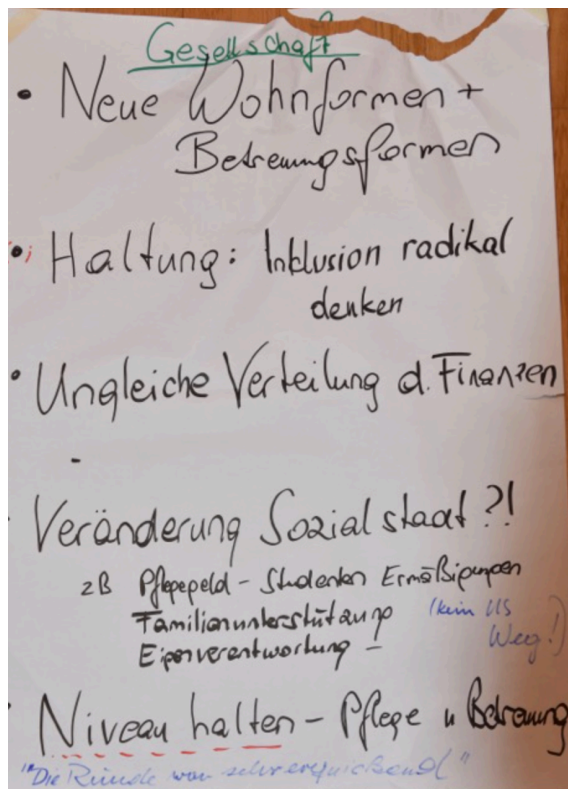 Gesellschaft
• Neue Wohnformen +
Betreuungsformen
• Haltung: Inklusion radikal
denken
• Ungleiche Verteilung d. Finanzen
-
Veränderung Sozialstaat ?!
zB Pflegegeld - Studenten Ermäßigungen
Familienunterstützung (kein US
Eigenverantwortung - Weg!)
• Niveau halten - Pflege u Betreuung
"Die Runde war sehr erquickend"